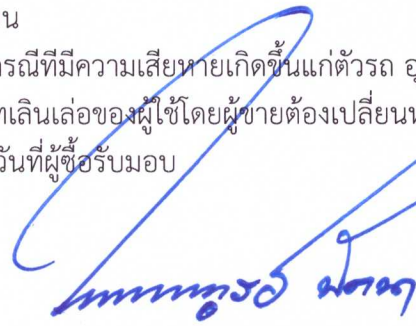 น
รณีที่มีความเสียหายเกิดขึ้นแก่ตัวรถ อุ
ทเลินเล่อของผู้ใช้โดยผู้ขายต้องเปลี่ยน
วันที่ผู้ซื้อรับมอบ